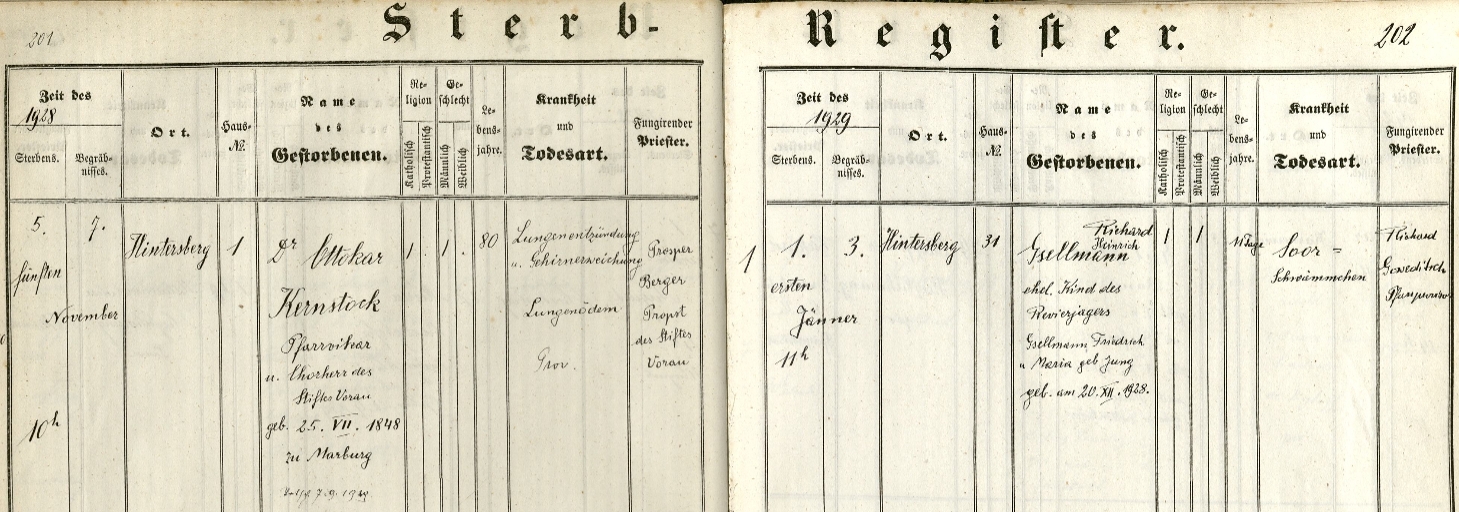 201
Sterb-
Zeit des
1928
Sterbens.
Begräb-
nisses.
Ort.
Haus-
№.
Name
des
Gestorbenen.
Re-
ligion
Katholisch
Protestantisch
Ge-
schlecht
Männlich
Weiblich
Le-
bens-
jahre.
Krankheit
und
Todesart.
Fungirender
Priester.
5.
fünften
7.
November
10h
Hintersberg
1
Dr Ottokar
Kernstock
Pfarrvikar
u. Chorherr des
Stiftes Vorau
geb. 25. VII. 1848
zu Marburg
1
1.
80
Lungenentzündung
u. Gehirnerweichung
Lungenödem
Prov.
Prosper
Berger
Propst
des Stiftes
Vorau
Register.
202
Zeit des
1929
Sterbens.
Begräb-
nisses.
Ort.
Haus-
№.
Name
des
Gestorbenen.
Re-
ligion
Katholisch
Protestantisch
Ge-
schlecht
Männlich
Weiblich
Le-
bens-
jahre.
Krankheit
und
Todesart.
Fungirender
Priester.
1
1.
ersten
3.
Jänner
11h
Hintersberg
31
Richard
Heinrich
Gsellmann
ehel. Kind des
Revierjägers
Gsellmann Friedrich
u Maria geb Jung
geb. am 20. XII. 1928.
1
1
11 Tage
Soor =
Schwämmchen
Richard